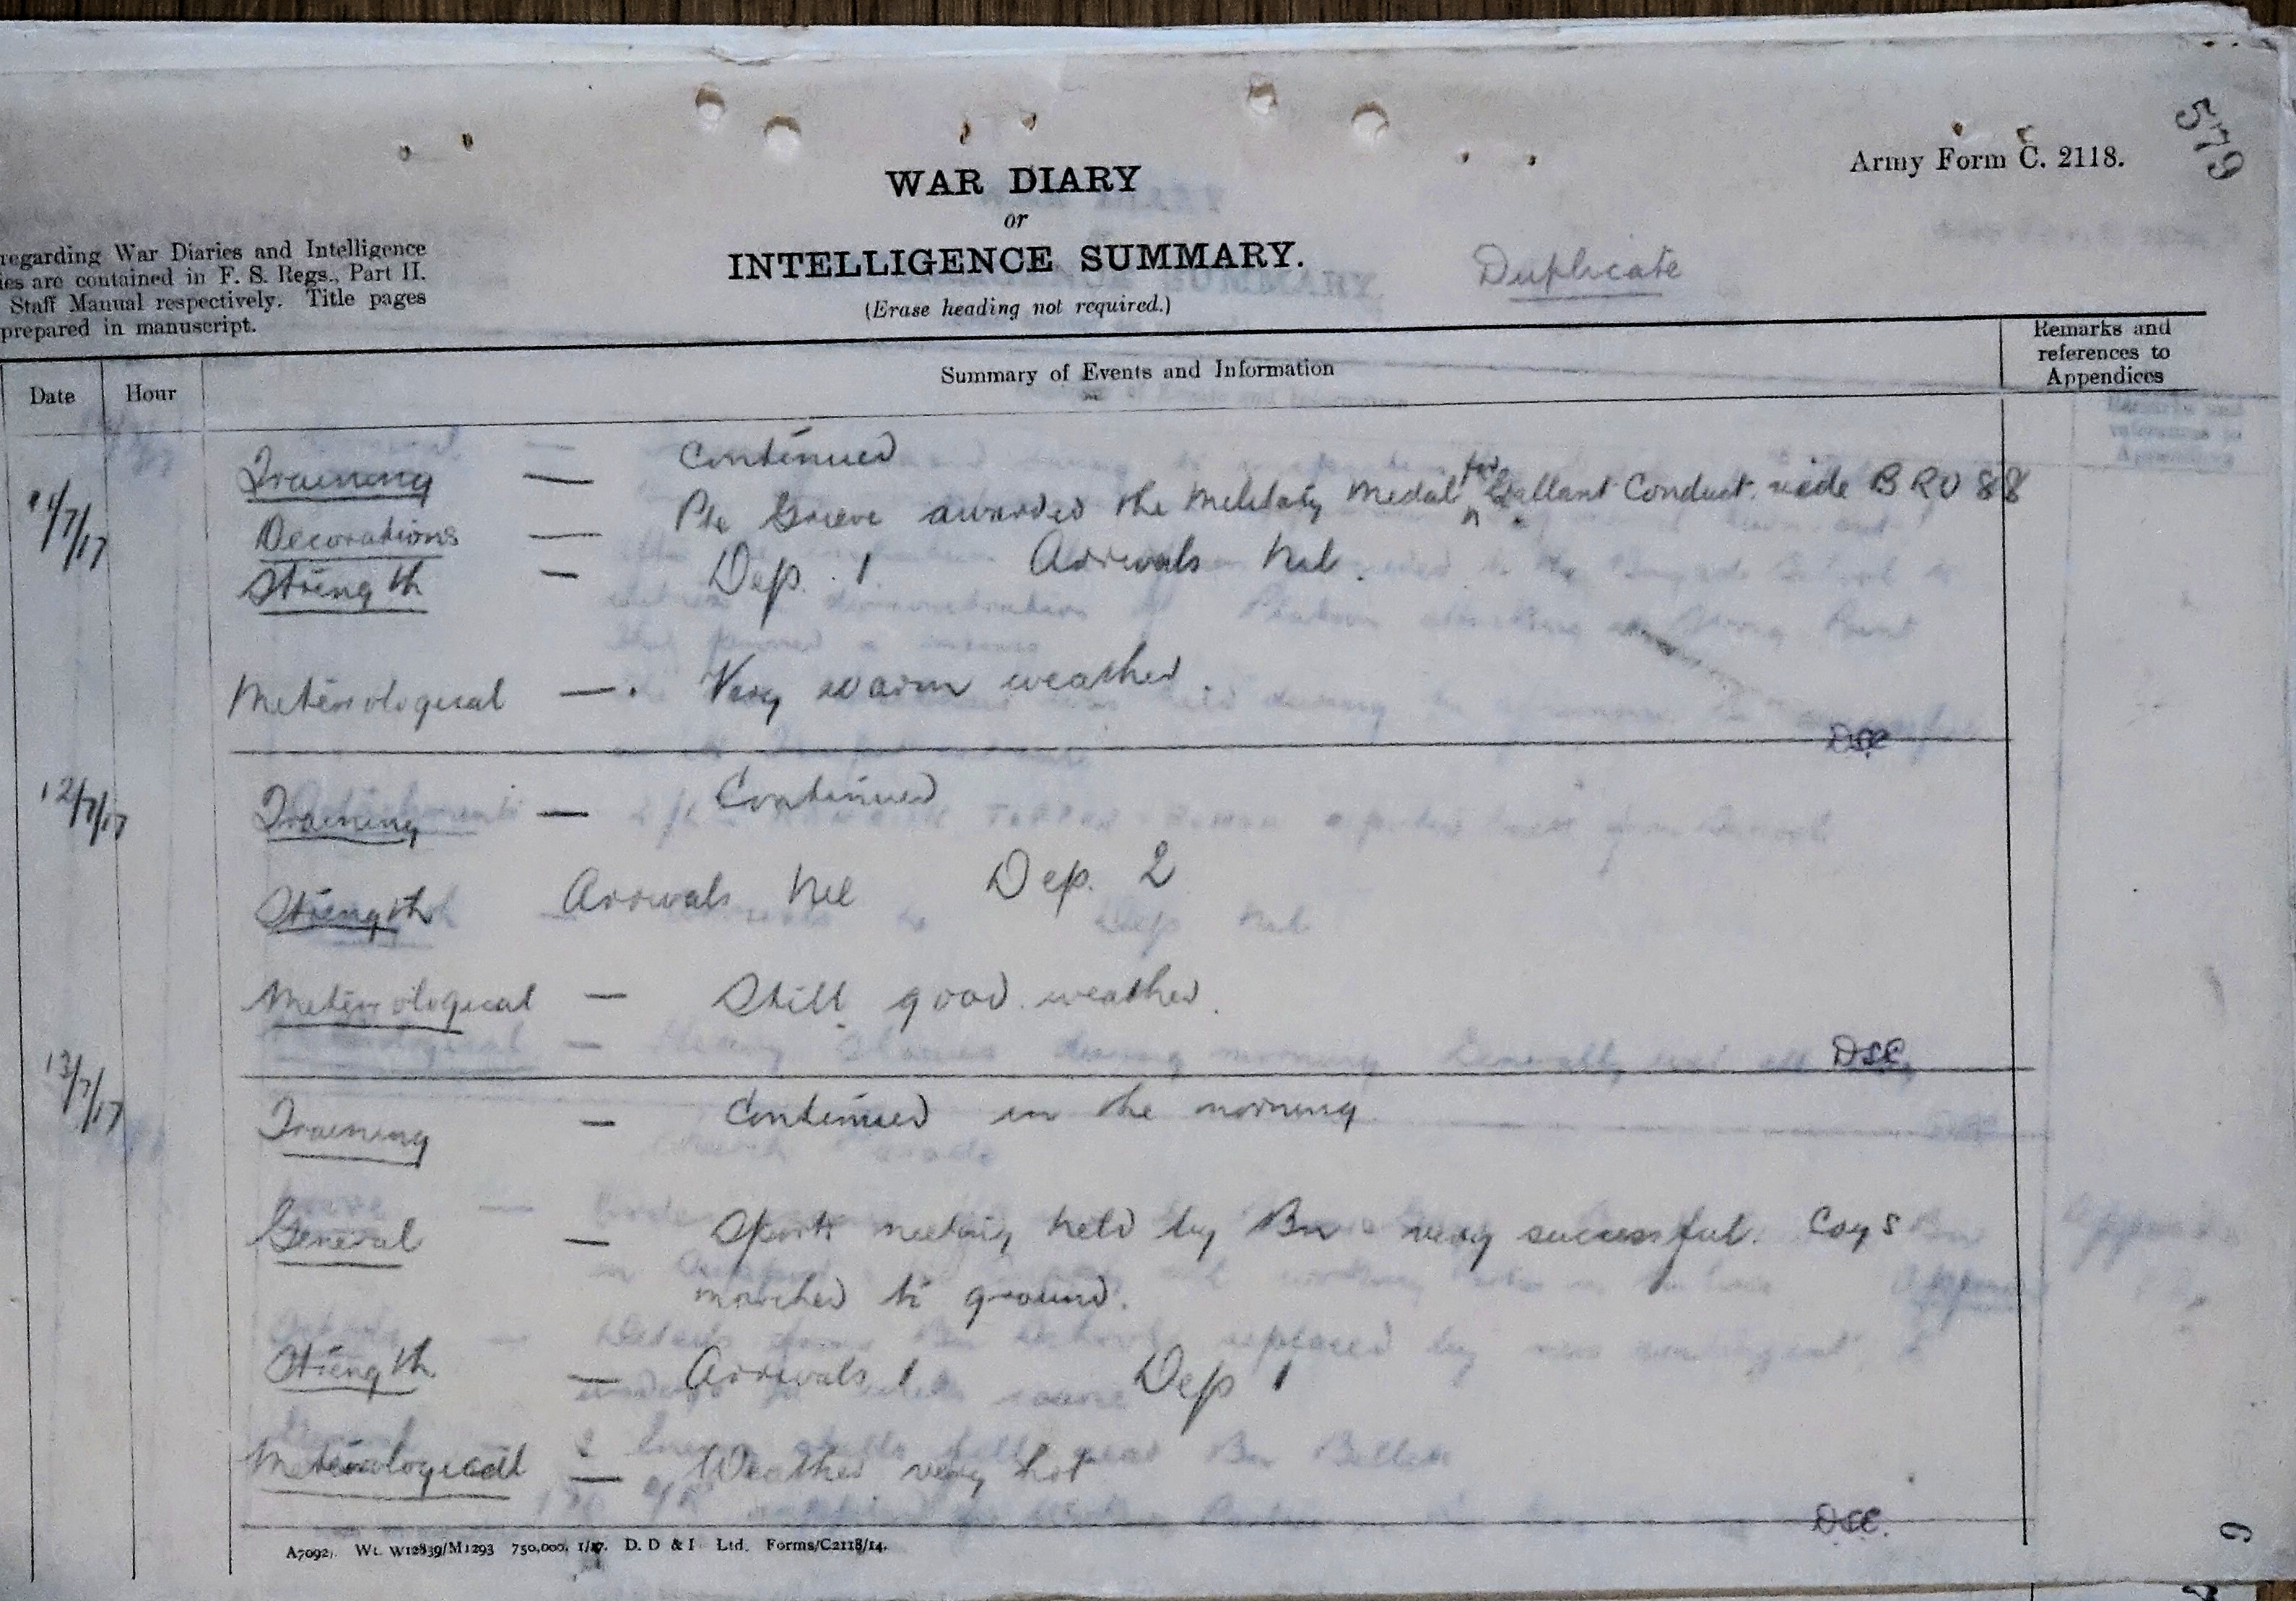 579
Army Form C. 2118.
WAR DIARY
or
INTELLIGENCE SUMMARY.
(Erase heading not required.)
Duplicate
regarding War Diaries and Intelligence
ies are contained in F. S. Regs., Part II.
Staff Manual respectively. Title pages
prepared in manuscript.
Date Hour Summary of Events and Information Remarks and references to Appendices
11/7/17 Training — Continued
Decorations — Pte Grieve awarded the Military Medal for Gallant Conduct. vide BRO 88
Strength — Dep. 1 Arrivals Nil.
Meteorological — Very warm weather.
DSC
12/7/17 Training — Continued
Strength Arrivals Nil Dep. 2
Meteorological — Still good weather.
DSC
13/7/17
Training — Continued in the morning
General — Sports meeting held by Bn very successful. Coys
marched to ground.
Strength — Arrivals 1 Dep 1
Meteorological — Weather very hot
DSC.
A7092. Wt. W12839/M1293 750,000. 1/17. D. D & I Ltd. Forms/C2118/14.
9